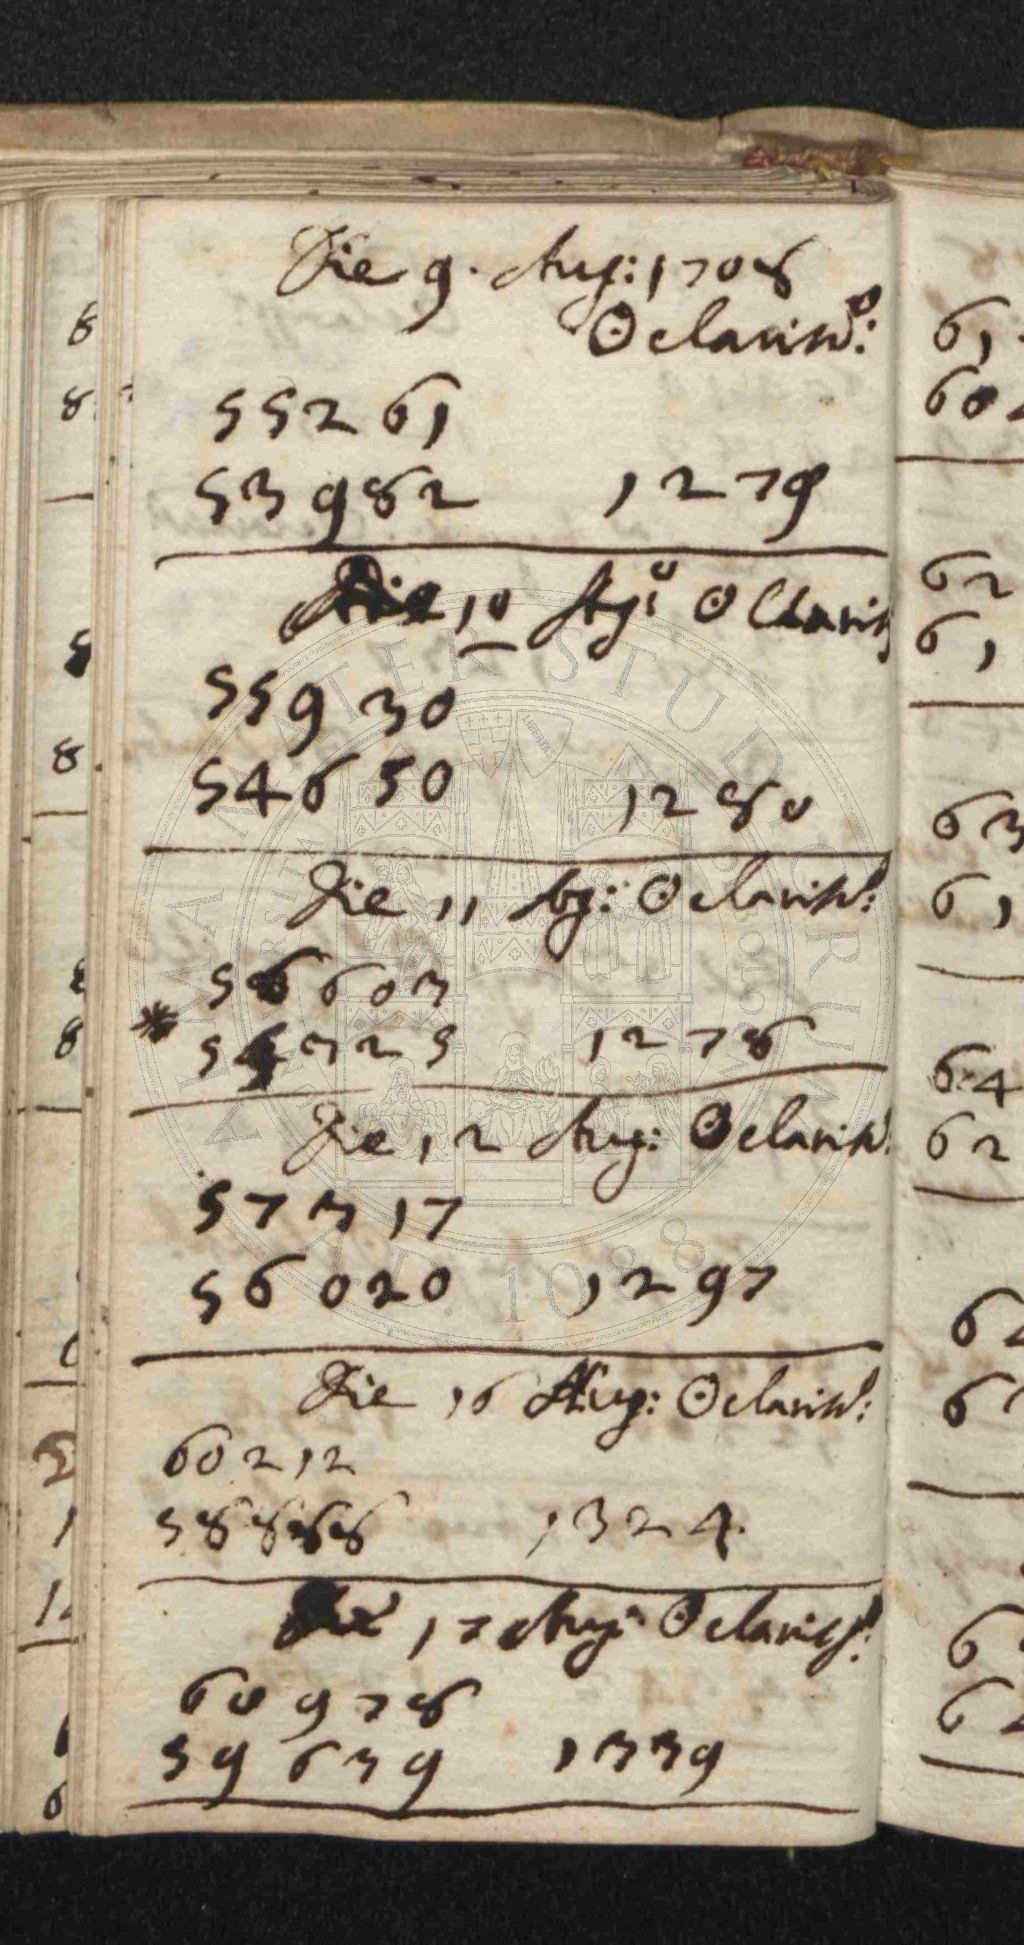 Die 9. Aug: 1708
☉ clariss.º:
55261
53982 1279
Die 10 Aug: ☉ Clariss
55930
54650 1280
Die 11 Ag: ☉ clariss:
56603
* 54325 1278
Die 12 Aug: ☉ clariss:
57317
56020 1297
Die 16 Aug: ☉ clariss:
60212
58888 1324.
Die 17 Aug: ☉ clariss:
60978
59639 1339
ALMA MATER STUDIORUM
A.D. 1088